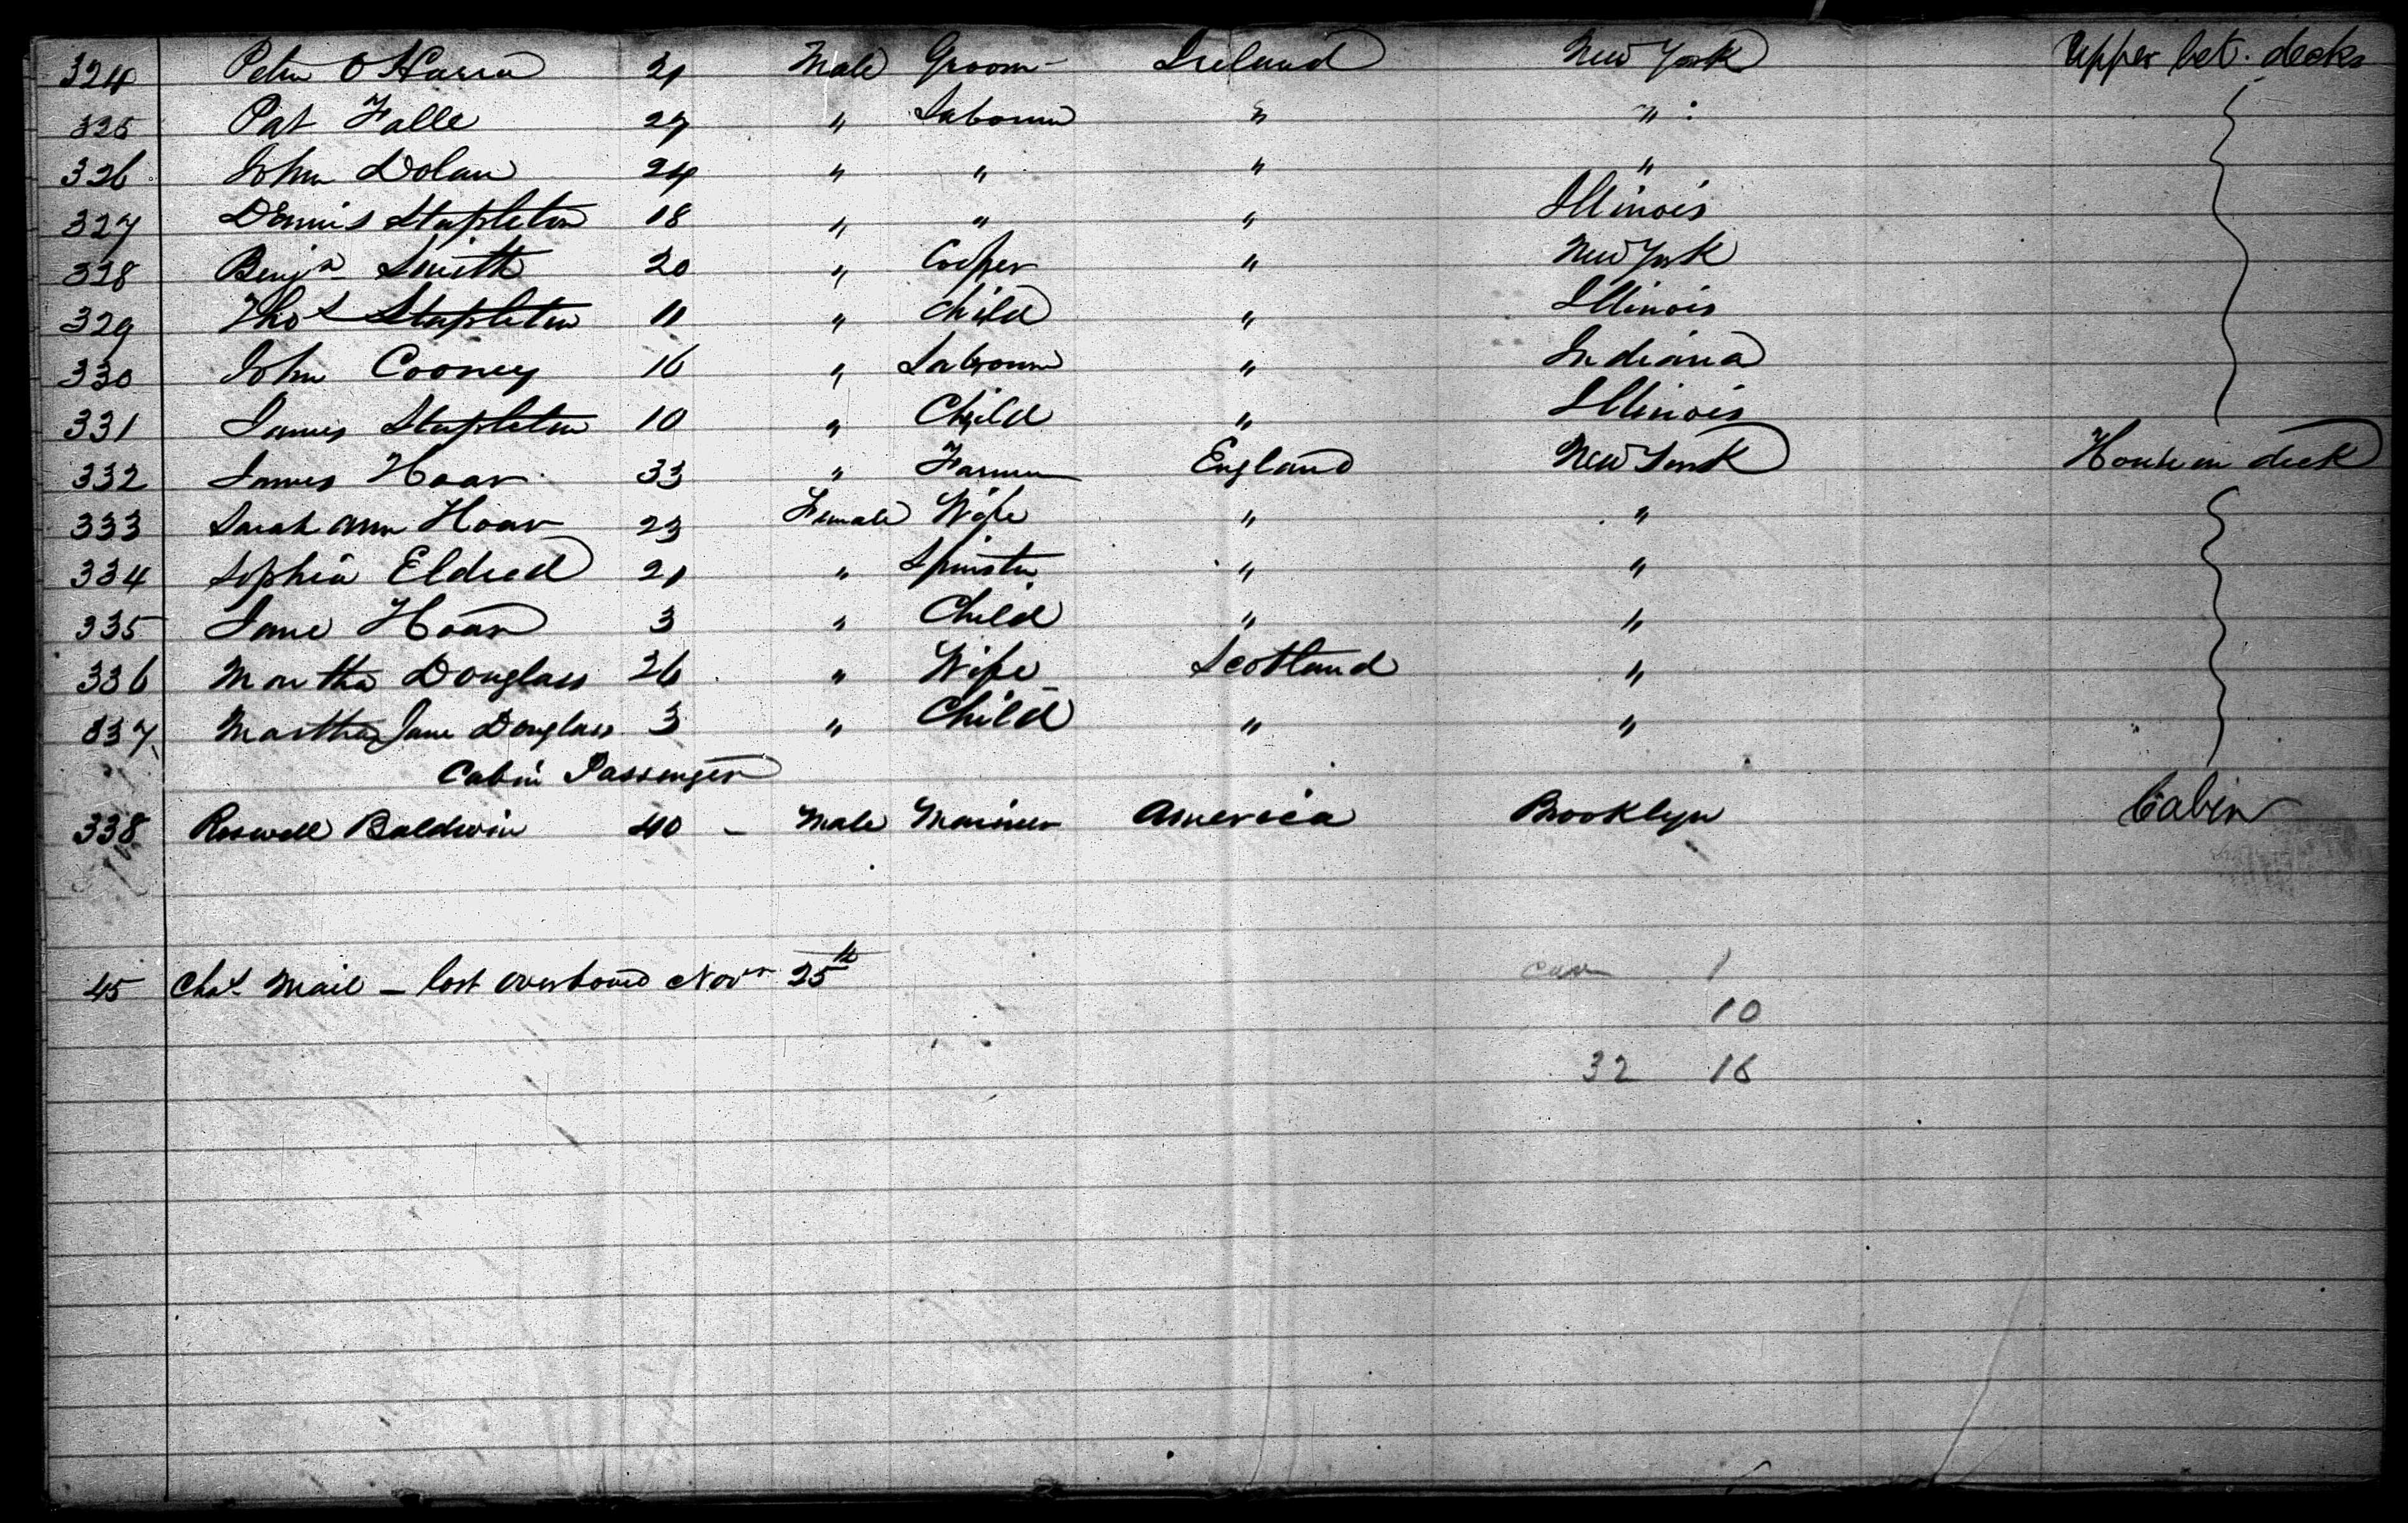 324 Peter O Harra 21 Male Groom Ireland New York Upper bet. decks
325 Pat Falle 27 " Labourer " "
326 John Dolan 24 " " " "
327 Dennis Stapleton 18 " " " Illinois
328 Benjn Smith 20 " Cooper " New York
329 Thos Stapleton 11 " Child " Illinois
330 John Cooney 16 " Labourer " Indiana
331 James Stapleton 10 " Child " Illinois
332 James Hoar 33 " Farmer England New York House on deck
333 Sarah Ann Hoar 23 Female Wife " "
334 Sophia Eldred 21 " Spinster " "
335 Jane Hoar 3 " Child " "
336 Martha Douglass 26 " Wife Scotland "
337 Martha Jane Douglass 3 " Child " "
Cabin Passenger
338 Roswell Baldwin 40 - Male Mariner America Brooklyn Cabin
45 Chas Mail - lost overboard Novr 25th
1
10
32 16